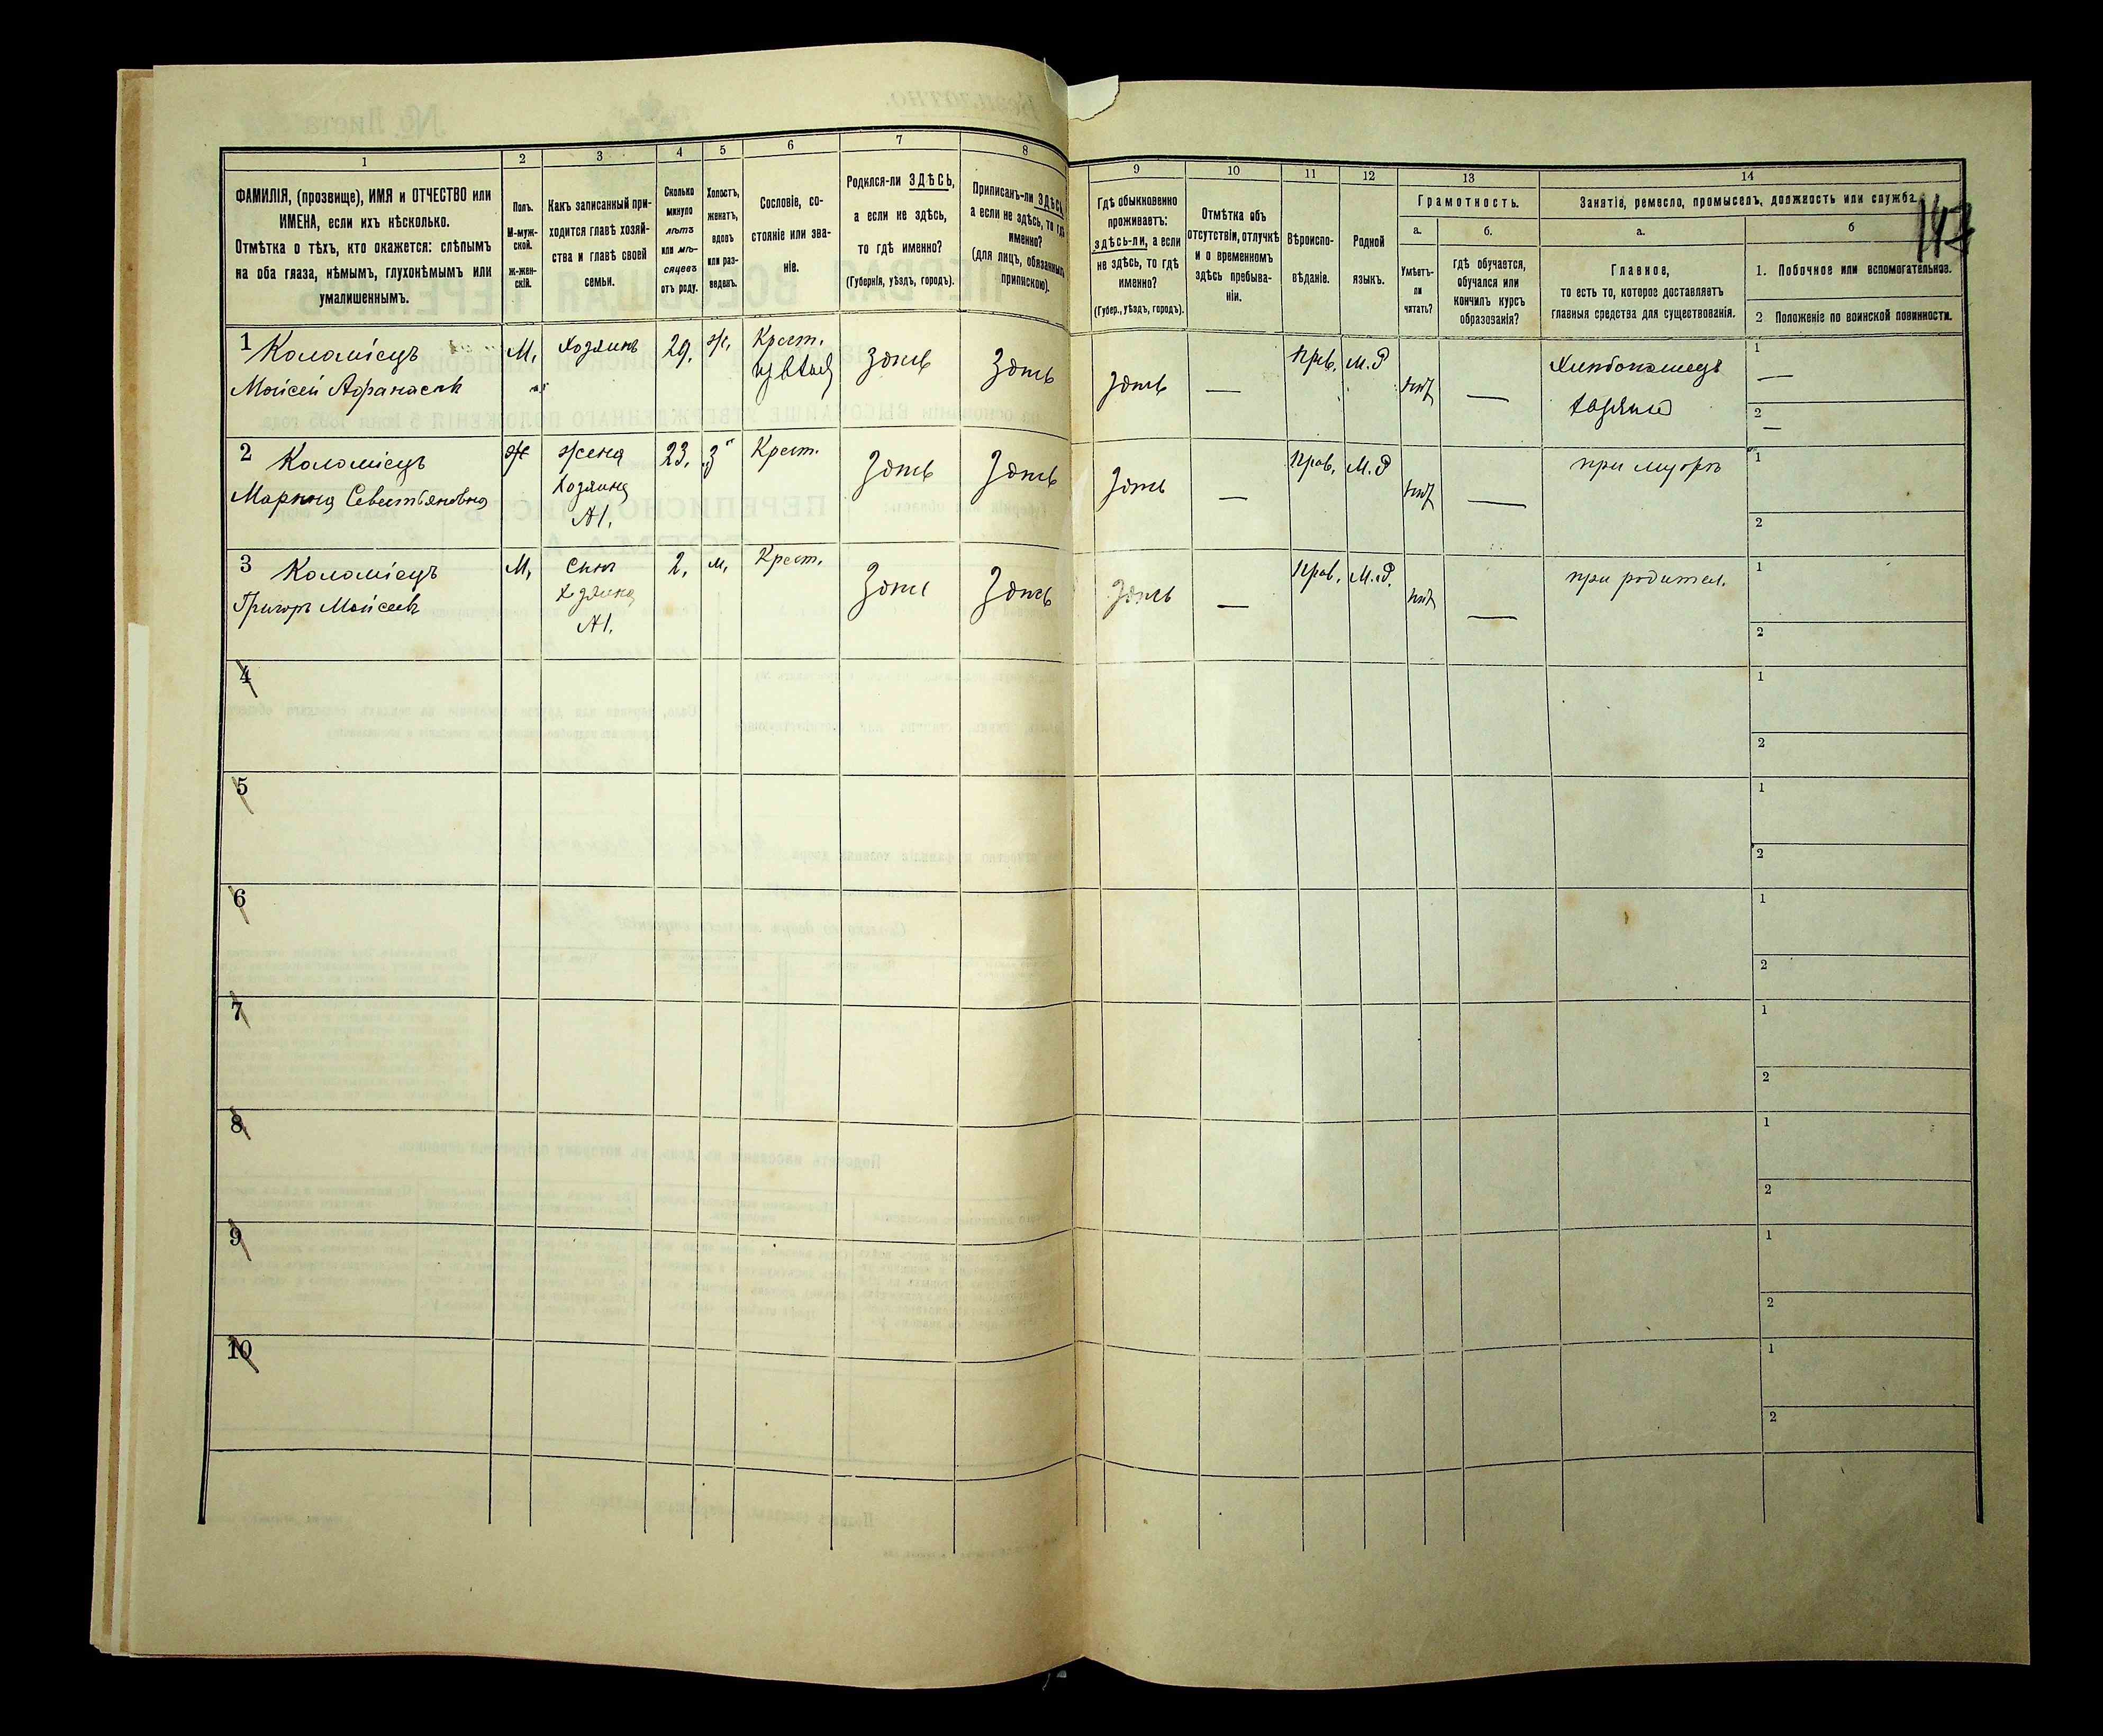 1 2 3 4 5 6 7 8 9 10 11 12 13 14
ФАМИЛІЯ, (прозвище), ИМЯ и ОТЧЕСТВО или
ИМЕНА, если ихъ нѣсколько.
Отмѣтка о тѣхъ, кто окажется: слѣпымъ
на оба глаза, нѣмымъ, глухонѣмымъ или
умалишеннымъ.
Полъ.
М-муж-
ской.
ж-жен-
скій.
Какъ записанный при-
ходится главѣ хозяй-
ства и главѣ своей
семьи.
Сколько
минуло
лѣтъ
или мѣ-
сяцевъ
отъ роду.
Холостъ,
женатъ,
вдовъ
или раз-
веденъ.
Сословіе, со-
стояніе или зва-
ніе.
Родился-ли ЗДѢСЬ,
а если не здѣсь,
то гдѣ именно?
(Губернія, уѣздъ, городъ).
Приписанъ-ли ЗДѢСЬ,
а если не здѣсь, то гдѣ
именно?
(для лицъ, обязанныхъ
припискою).
Гдѣ обыкновенно
проживаетъ:
здѣсь-ли, а если
не здѣсь, то гдѣ
именно?
(Губер., уѣздъ, городъ).
Отмѣтка объ
отсутствіи, отлучкѣ
и о временномъ
здѣсь пребыва-
ніи.
Вѣроиспо-
вѣданіе.
Родной
языкъ.
Грамотность.
а.
Умѣетъ-
ли
читать?
б.
гдѣ обучается,
обучался или
кончилъ курсъ
образованія?
Занятіе, ремесло, промыселъ, должность или служба.
147
а.
Главное,
то есть то, которое доставляетъ
главныя средства для существованія.
б
1. Побочное или вспомогательное.
2 Положеніе по воинской повинности.
1 Коломіецъ М, Хозяинъ 29, ж, Крест. здѣсь здѣсь здѣсь — Прав. М.Р нѣт — Хлѣбопашецъ 1 —
Моисей Афанасев хозяинъ 2 —
2 Коломіецъ Ж жена 23, з Крест. здѣсь здѣсь здѣсь — Прав. М.Р нѣт — при мужѣ 1
Марина Севастьяновна хозяина 2
№1.
3 Коломіецъ М, сын 2, м, Крест. здѣсь здѣсь здѣсь — Прав. М.Р. нѣт — при родител. 1
Григор Моисеев хозяина 2
№1.
4 1
2
5 1
2
6 1
2
7 1
2
8 1
2
9 1
2
10 1
2